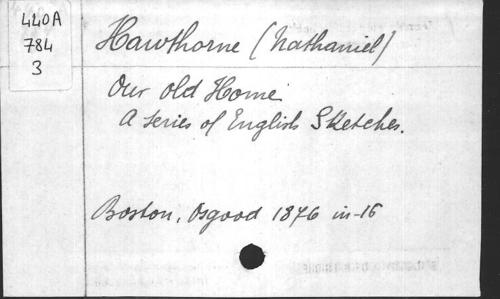 440A
784
3
Hawthorne (Nathaniel)
Our Old Home
A series of English Sketches.
Boston, Osgood 1876 in-16